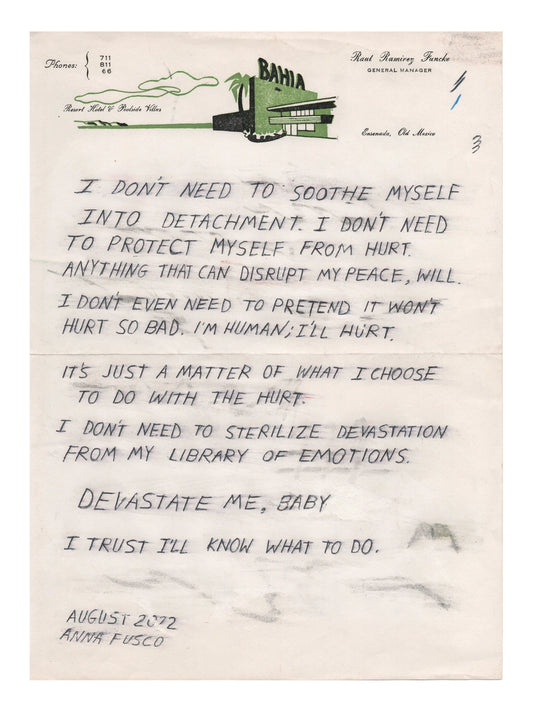 Phones: { 711
811
66
Raul Ramirez Funcke
GENERAL MANAGER
BAHIA
Resort Hotel & Poolside Villas
Ensenada, Old Mexico
3
I DON'T NEED TO SOOTHE MYSELF
INTO DETACHMENT. I DON'T NEED
TO PROTECT MYSELF FROM HURT.
ANYTHING THAT CAN DISRUPT MY PEACE, WILL.
I DON'T EVEN NEED TO PRETEND IT WON'T
HURT SO BAD. I'M HUMAN; I'LL HURT.
IT'S JUST A MATTER OF WHAT I CHOOSE
TO DO WITH THE HURT.
I DON'T NEED TO STERILIZE DEVASTATION
FROM MY LIBRARY OF EMOTIONS.
DEVASTATE ME, BABY
I TRUST I'LL KNOW WHAT TO DO.
AUGUST 2022
ANNA FUSCO